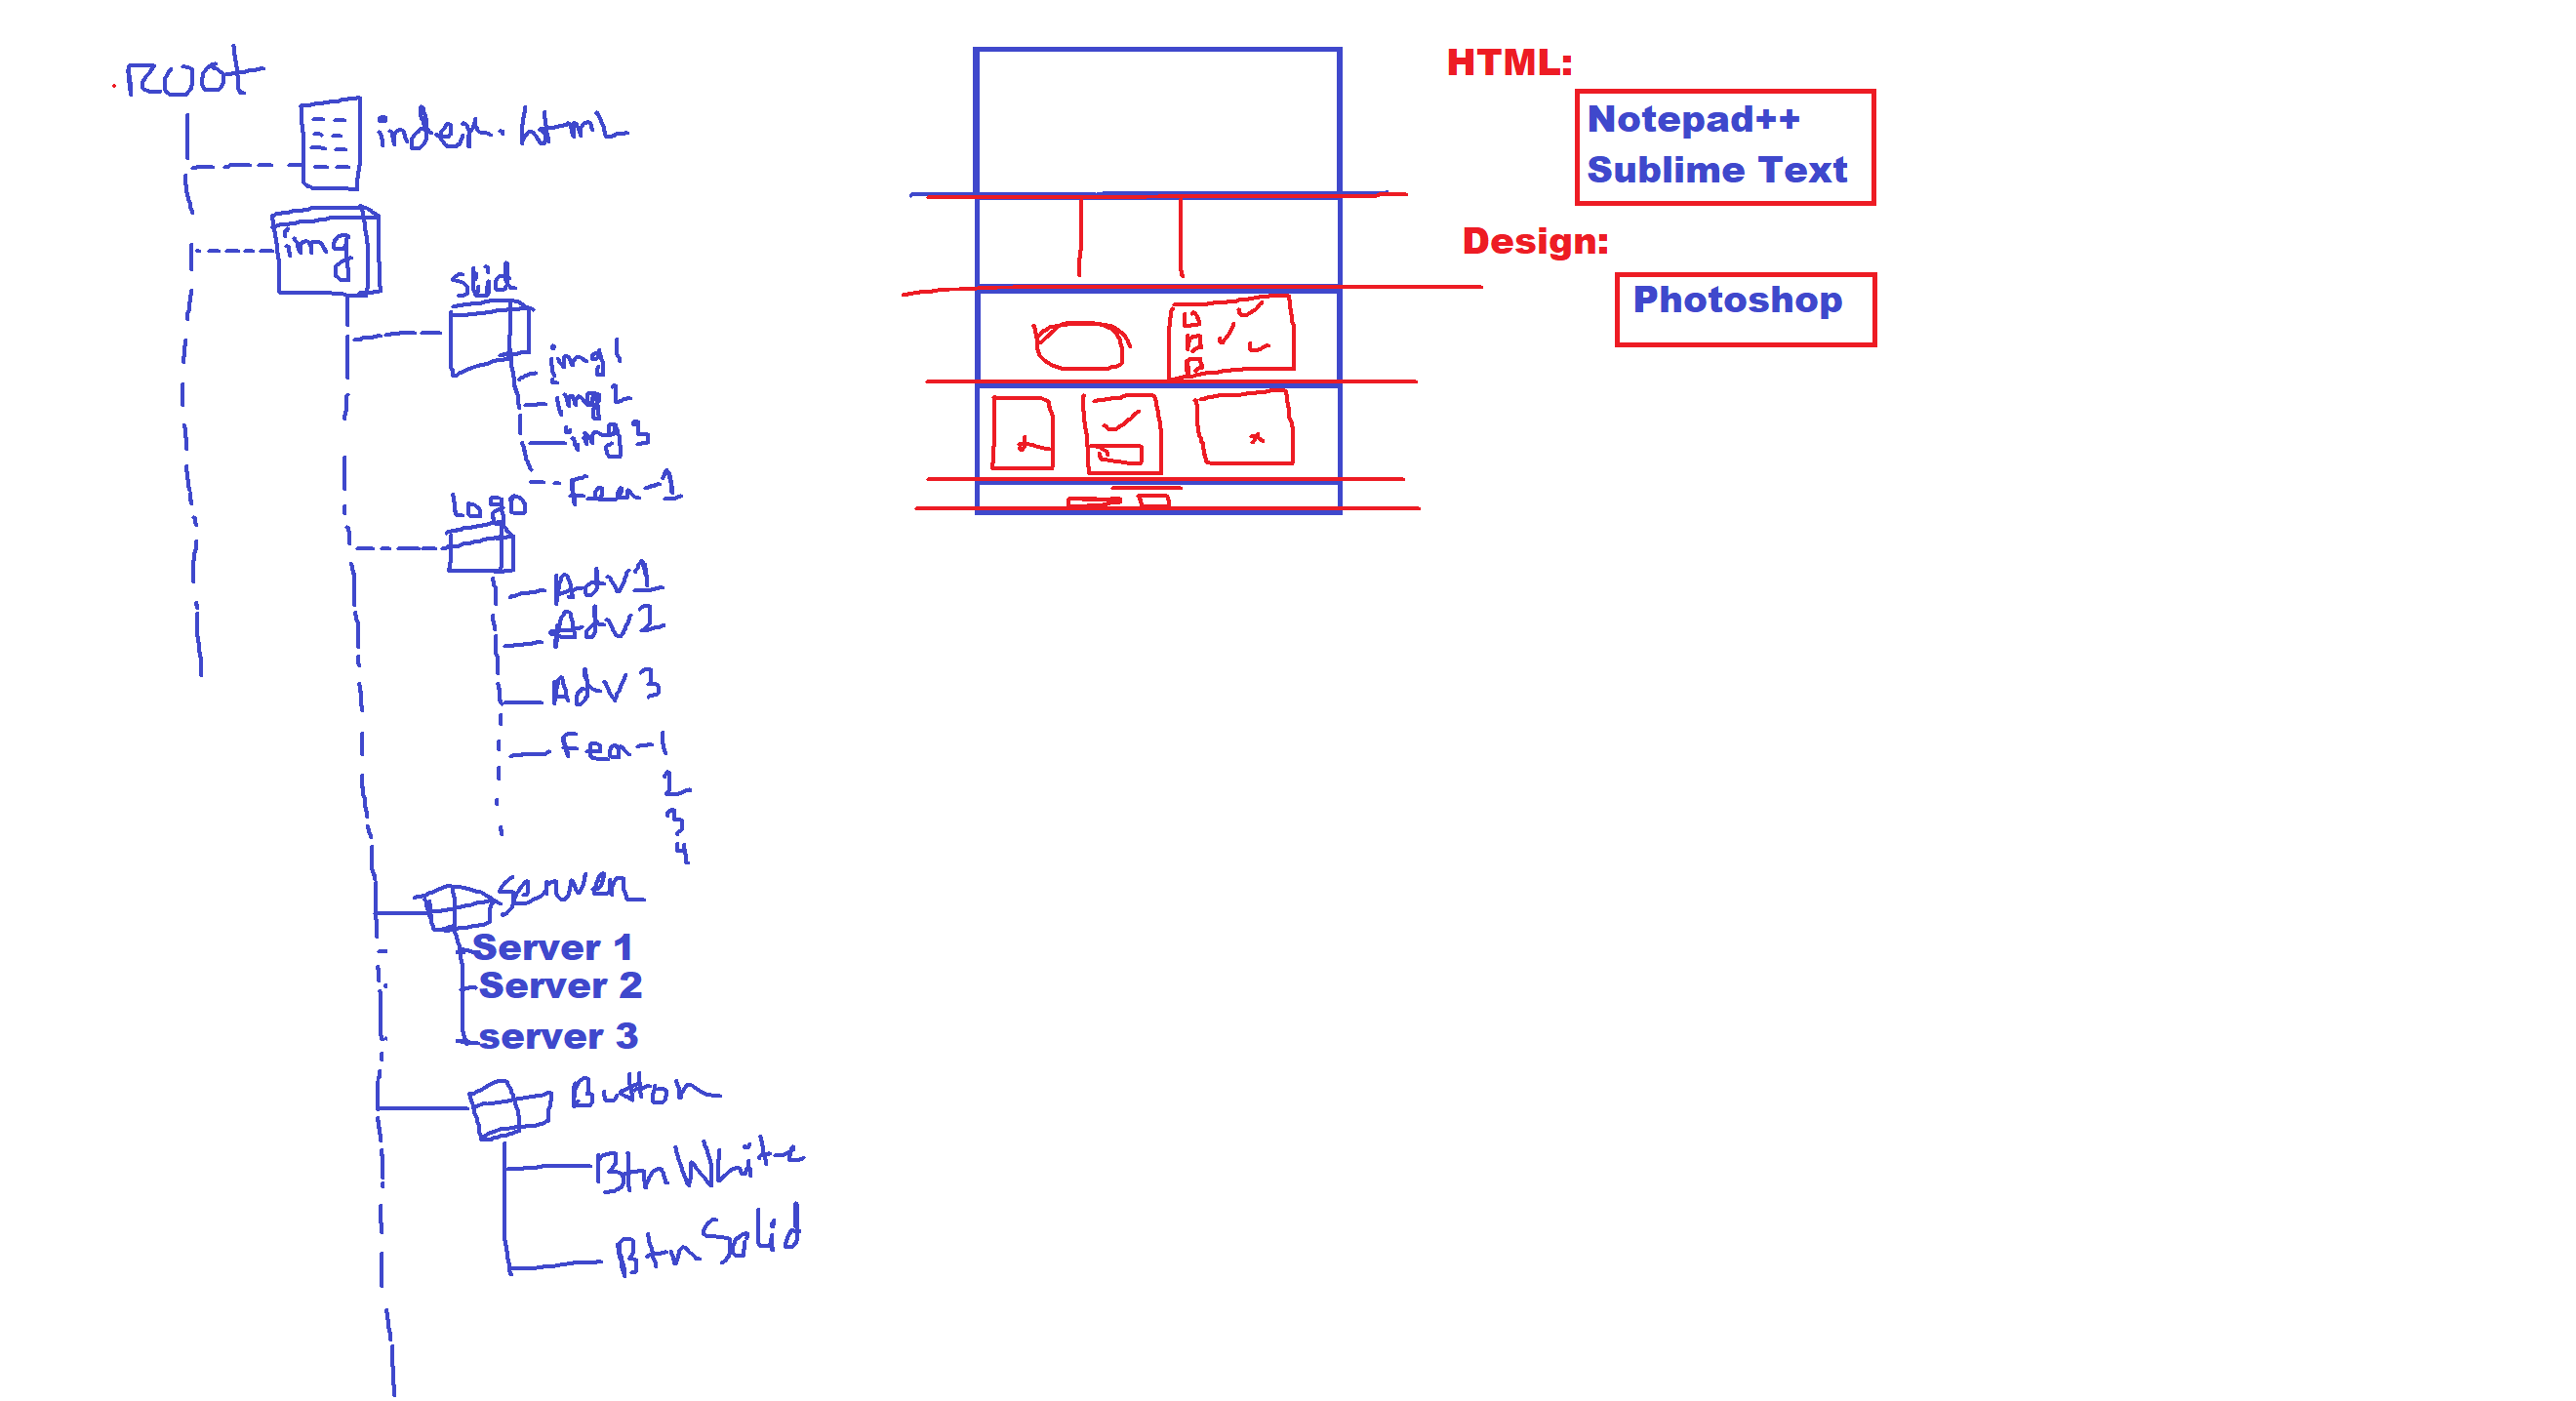 root
index.html
img
slid
img1
img2
img3
Fea-1
Logo
Adv1
Adv2
Adv3
Fea-1
2
3
4
Server
Server 1
Server 2
server 3
Button
BtnWhite
BtnSolid
HTML:
Notepad++
Sublime Text
Design:
Photoshop